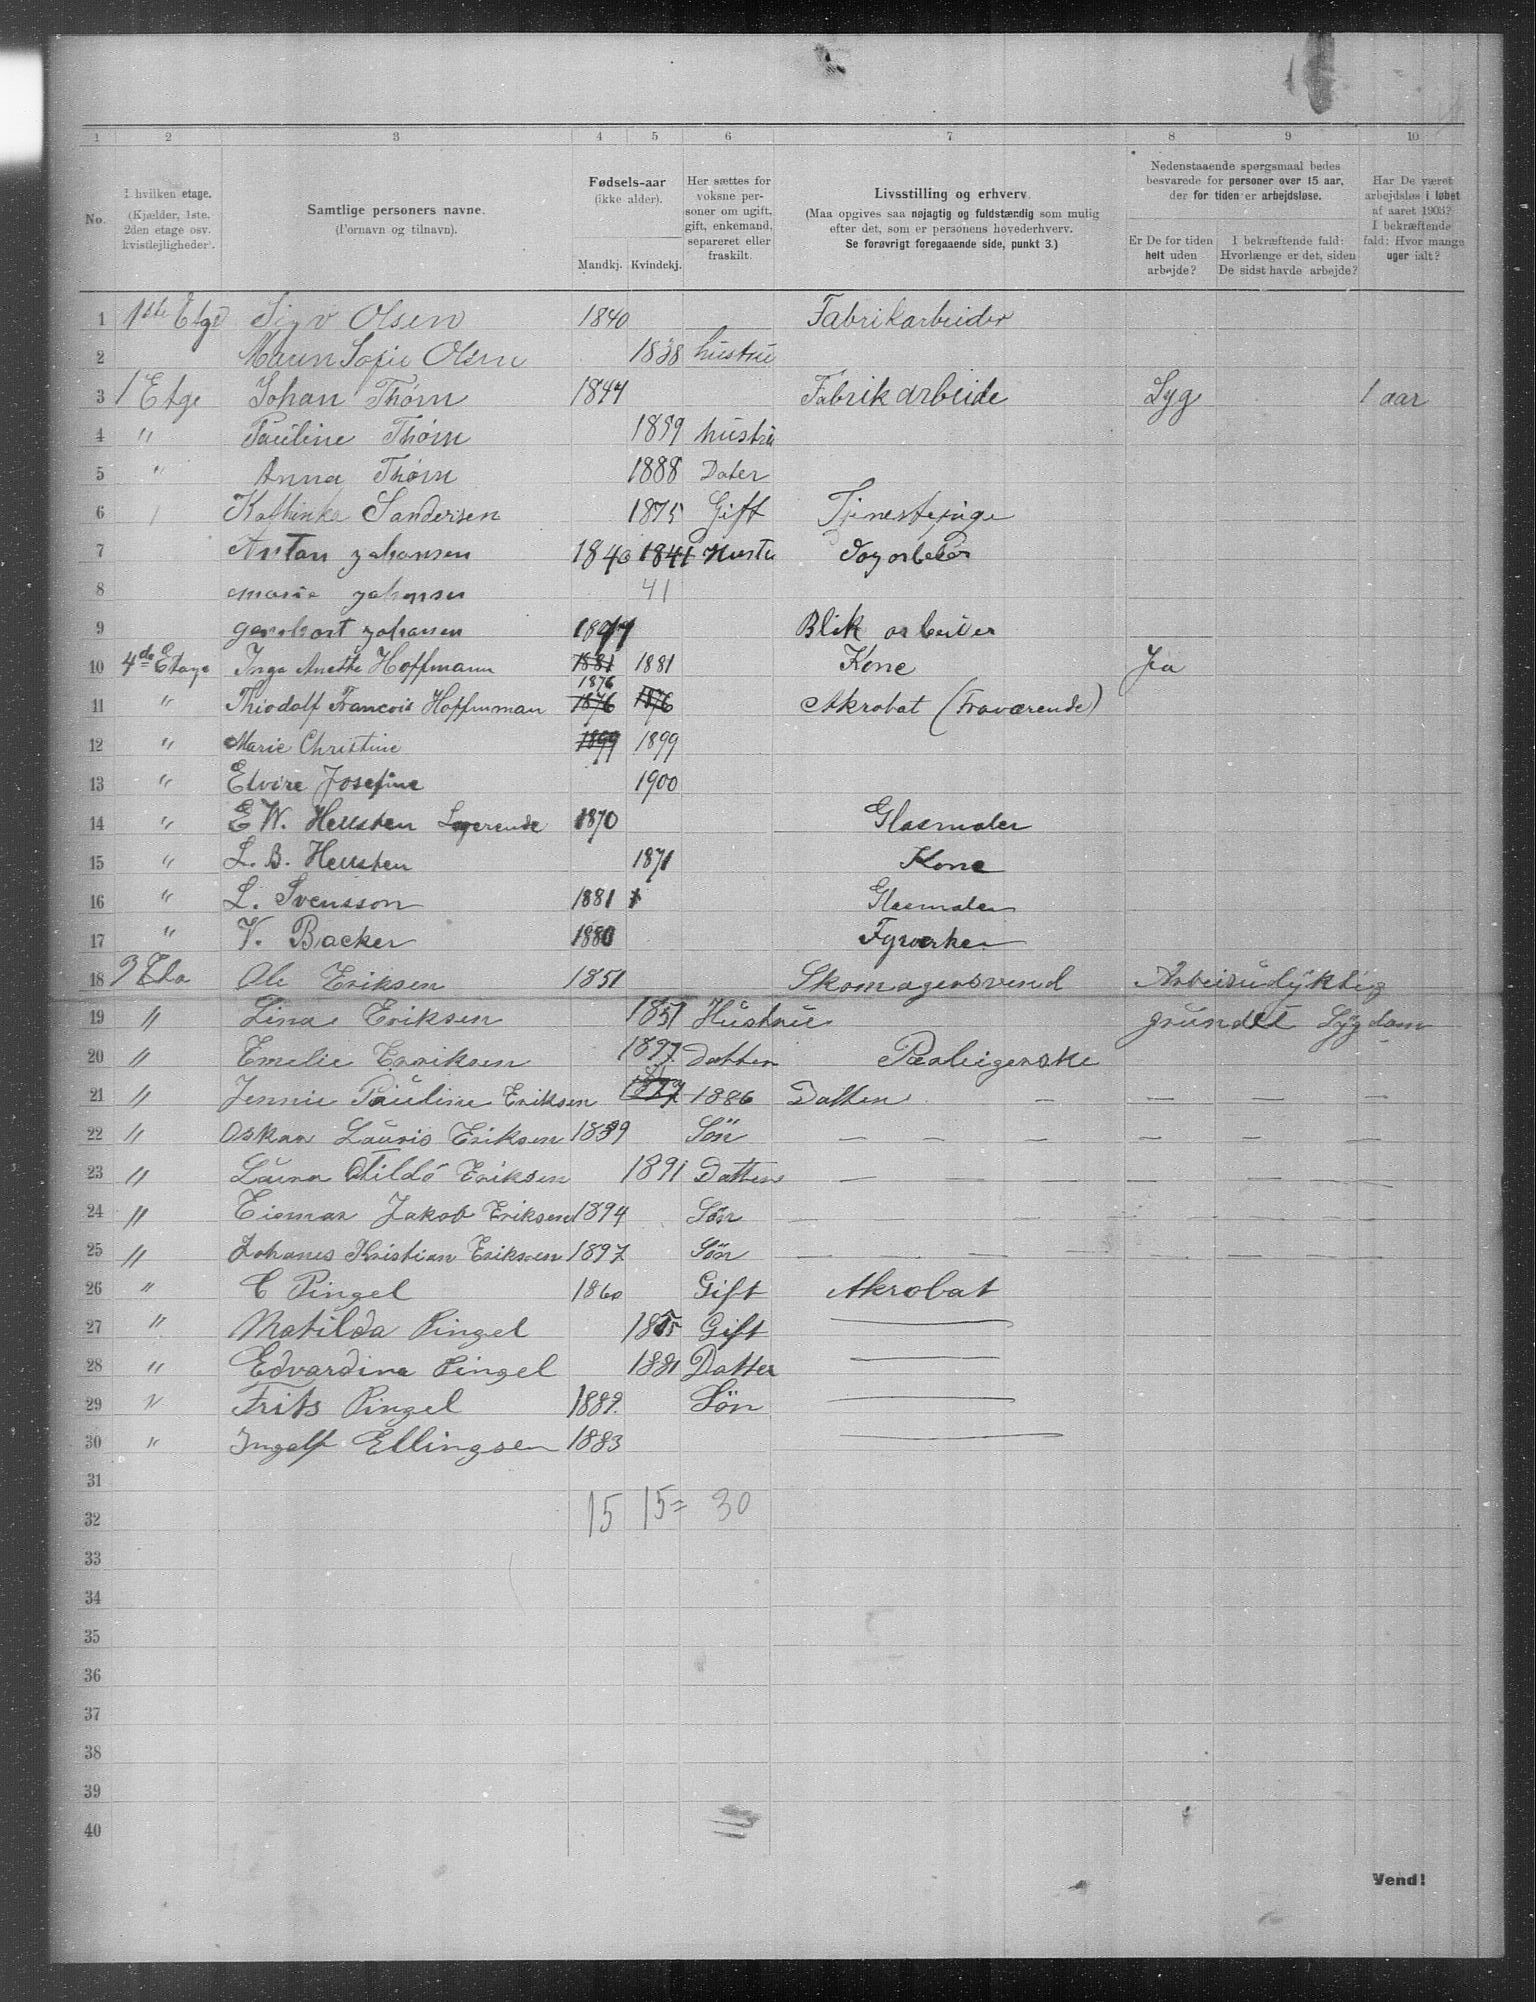 1 2 3 4 5 6 7 8 9 10
No.
I hvilken etage. (Kjælder, 1ste. 2den etage osv. kvistlejligheder).
Samtlige personers navne. (Fornavn og tilnavn).
Fødsels-aar (ikke alder). Mandkj. Kvindekj.
Her sættes for voksne personer om ugift, gift, enkemand, separeret eller fraskilt.
Livsstilling og erhverv. (Maa opgives saa nøjagtig og fuldstændig som mulig efter det, som er personens hovederhverv. Se forøvrigt foregaaende side, punkt 3.)
Nedenstaaende spørgsmaal bedes besvarede for personer over 15 aar, der for tiden er arbejdsløse.
Er De for tiden helt uden arbejde?
I bekræftende fald: Hvorlænge er det, siden De sidst havde arbejde?
Har De været arbejdsløs i løbet af aaret 1903? I bekræftende fald: Hvor mange uger ialt?
1 1ste Etge Sigv Olsen 1840 Fabrikarbeider
2 Maren Sofie Olsen 1838 hustru
3 1 Etge Johan Thørn 1844 Fabrikarbeide Syg 1 aar
4 " Pauline Thørn 1859 hustru
5 " Anna Thørn 1888 Dater
6 Kathinka Sandersen 1875 Gift Tjinestepige
7 Antan Johansen 1840 1841 Hustu
8 marie Johansen 41
9 Gerhart Johansen 1877 Blik arbeider
10 4de Etage Inga Anette Hoffmann 1881 1881 Kone Ja
11 " Thiodolf Francois Hoffmman 1876 1876 1876 Akrobat (Fraværende)
12 " Marie Christine 1899 1899
13 " Elvire Josefine 1900
14 " E W. Hellsten Logerende 1870 Glasmaler
15 " L. B. Hellsten 1871 Kone
16 " L. Svensson 1881 Glasmaler
17 " V. Backer 1880 Fyrverker
18 3 Eta Ole Eriksen 1851 Skomagersvend Arbeisudyktig
19 " Lina Eriksen 1851 Hustrue grundet Sygdom
20 " Emelie Eriksen 1897 Datter
21 " Jennie Pauline Eriksen 1886 Datter — — — —
22 " Oskar Lauris Eriksen 1889 Søn — — — —
23 " Laura Otilde Eriksen 1891 Datter — — — —
24 " Eismar Jakob Eriksen 1894 Søn — — — —
25 " Johanes Kristian Eriksen 1897 Søn — — — —
26 " C Pingel 1860 Gift Akrobat
27 " Matilda Pingel 1855 Gift —
28 " Edvardine Pingel 1881 Datter —
29 " Frits Pingel 1889. Søn —
30 " Ingolf Ellingsen 1883 —
31
32 15 15 = 30
33
34
35
36
37
38
39
40
Vend!